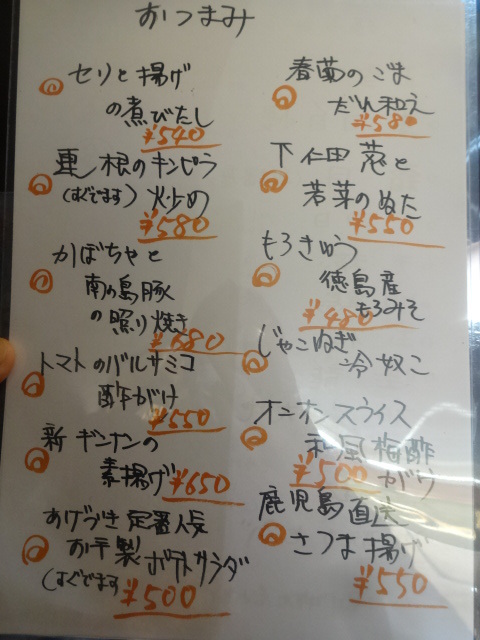 おつまみ
セリと揚げ
の煮びたし
¥540
蓮根のキンピラ
(すぐでます)炒め
¥580
かぼちゃと
南の島豚
の照り焼き
¥680
トマトのバルサミコ
酢がけ
¥550
新ギンナンの
素揚げ ¥650
あげづき定番人気
お手製ポテトサラダ
(すぐでます ¥500
春菊のごま
だれ和え
¥580
下仁田葱と
若芽のぬた
¥550
もろきゅう
徳島産
もろみそ
¥480
じゃこねぎ
冷奴こ
オニオンスライス
和風梅酢
¥500 がけ
鹿児島直送
さつま揚げ
¥550